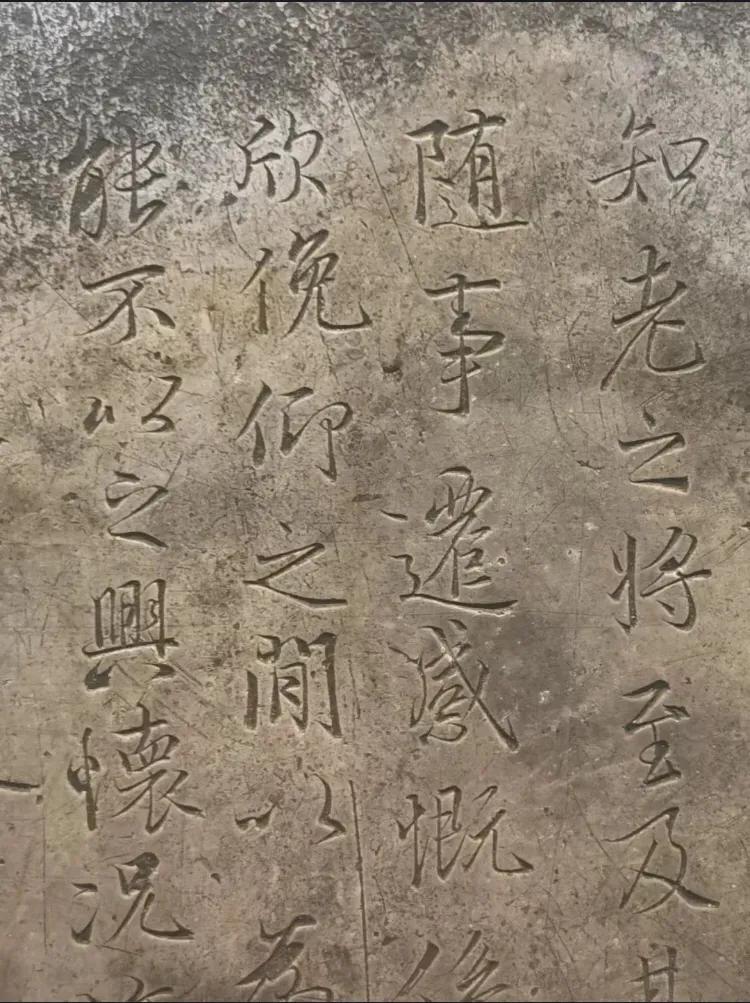 知老之将至及其
随事遷感慨係
欣俛仰之閒以為
能不以之興懷況